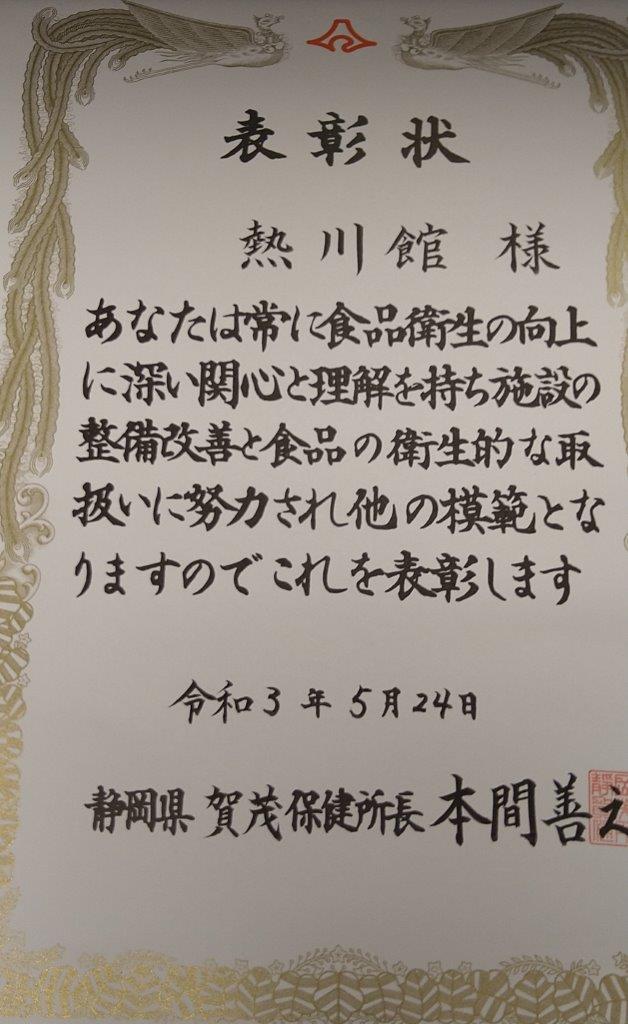 表彰状
熱川館 様
あなたは常に食品衛生の向上
に深い関心と理解を持ち施設の
整備改善と食品の衛生的な取
扱いに努力され他の模範とな
りますのでこれを表彰します
令和3年5月24日
静岡県 賀茂保健所長 本間善之